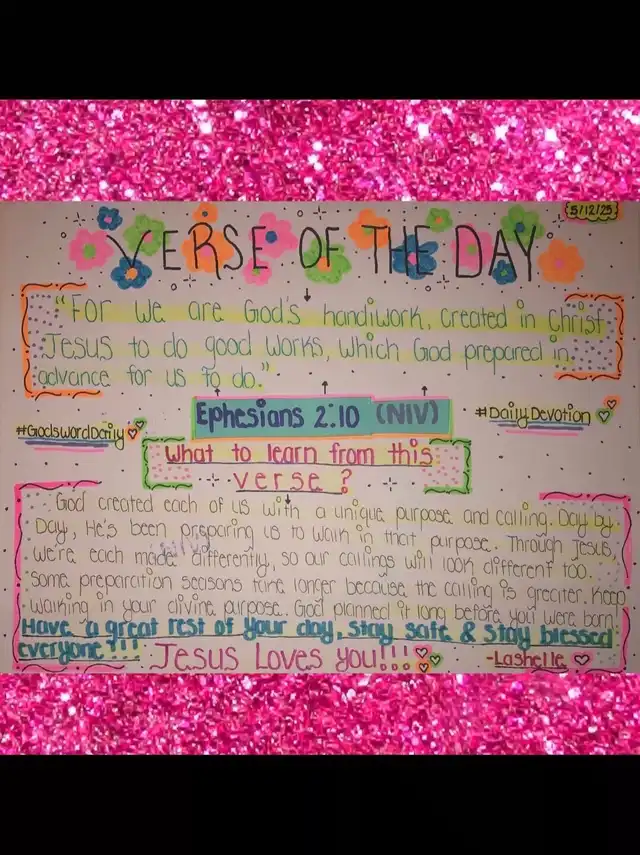 5/12/25
VERSE OF THE DAY
"For we are God's handiwork, created in Christ
Jesus to do good works, which God prepared in
advance for us to do."
Ephesians 2:10 (NIV)
#GodsWordDaily
#DailyDevotion
What to learn from this
verse?
God created each of us with a unique purpose and calling. Day by
Day, He's been preparing us to walk in that purpose. Through Jesus,
we're each made differently, so our callings will look different too.
Some preparation seasons take longer because the calling is greater. Keep
walking in your divine purpose. God planned it long before you were born!
Have a great rest of your day, stay safe & stay blessed
everyone!!!
Jesus Loves you!!!
-Lashelle